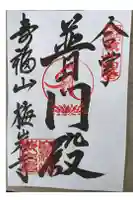 合掌
普門殿
寿福山 梅岩寺